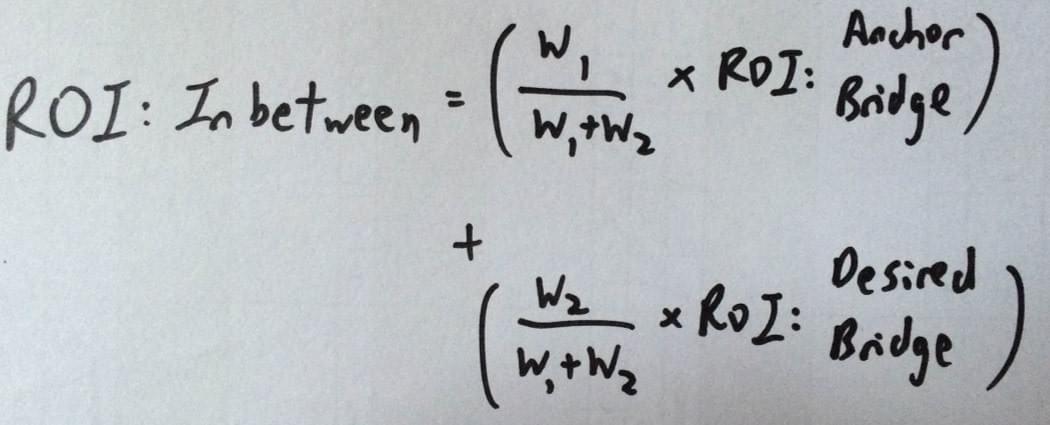 ROI: In between = ( W₁ / W₁+W₂ × ROI: Anchor Bridge )
+
( W₂ / W₁+W₂ × ROI: Desired Bridge )